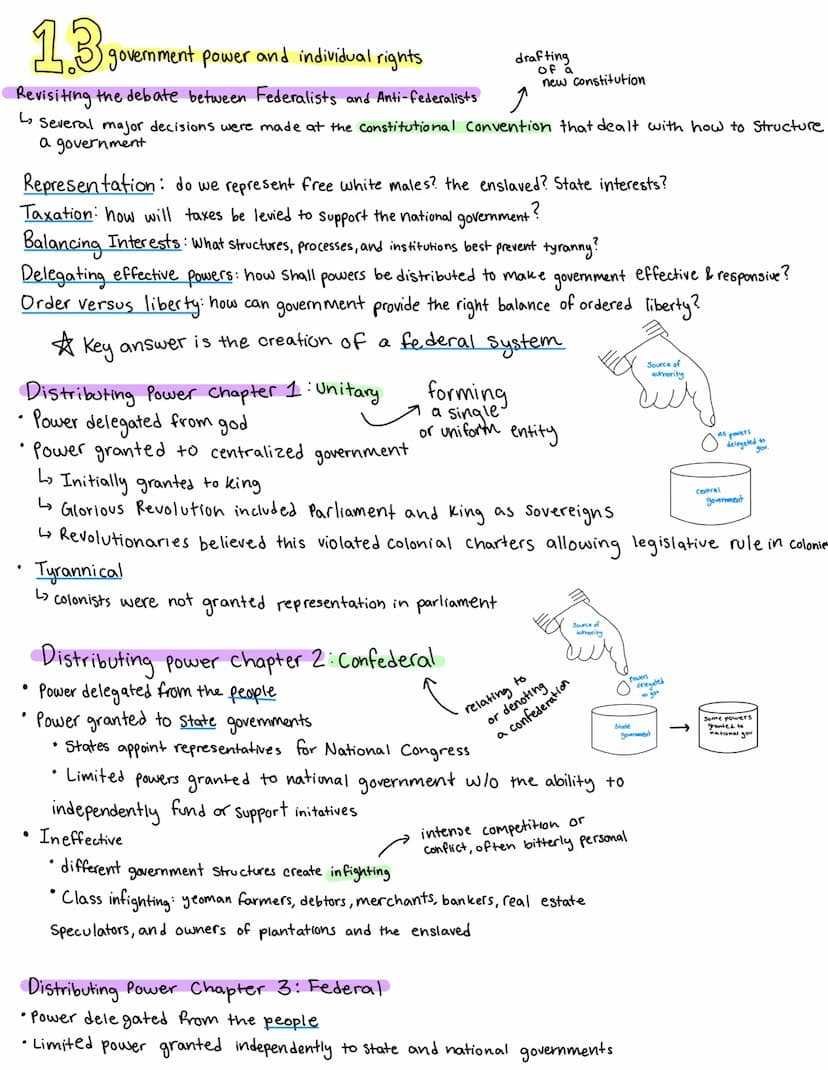 1.3 government power and individual rights
drafting
of a
new constitution
Revisiting the debate between Federalists and Anti-federalists
↳ Several major decisions were made at the constitutional convention that dealt with how to structure
a government
Representation: do we represent free white males? the enslaved? State interests?
Taxation: how will taxes be levied to support the national government?
Balancing Interests: What structures, processes, and institutions best prevent tyranny?
Delegating effective powers: how shall powers be distributed to make government effective & responsive?
Order versus liberty: how can government provide the right balance of ordered liberty?
☆ Key answer is the creation of a federal system
Source of
authority
All powers
delegated to
gov.
central
government
Distributing Power Chapter 1: Unitary
forming
a single
or uniform entity
• Power delegated from god
• Power granted to centralized government
↳ Initially granted to king
↳ Glorious Revolution included Parliament and King as Sovereigns
↳ Revolutionaries believed this violated colonial charters allowing legislative rule in colonie
• Tyrannical
↳ colonists were not granted representation in parliament
Source of
authority
Powers
delegated
to gov
State
government
Some powers
granted to
national gov
Distributing power chapter 2: Confederal
relating to
or denoting
a confederation
• Power delegated from the people
• Power granted to State governments
• States appoint representatives for National Congress
• Limited powers granted to national government w/o the ability to
independently fund or support initatives
• Ineffective
intense competition or
conflict, often bitterly personal
• different government structures create infighting
• Class infighting: yeoman farmers, debtors, merchants, bankers, real estate
speculators, and owners of plantations and the enslaved
Distributing Power Chapter 3: Federal
• Power delegated from the people
• Limited power granted independently to state and national governments